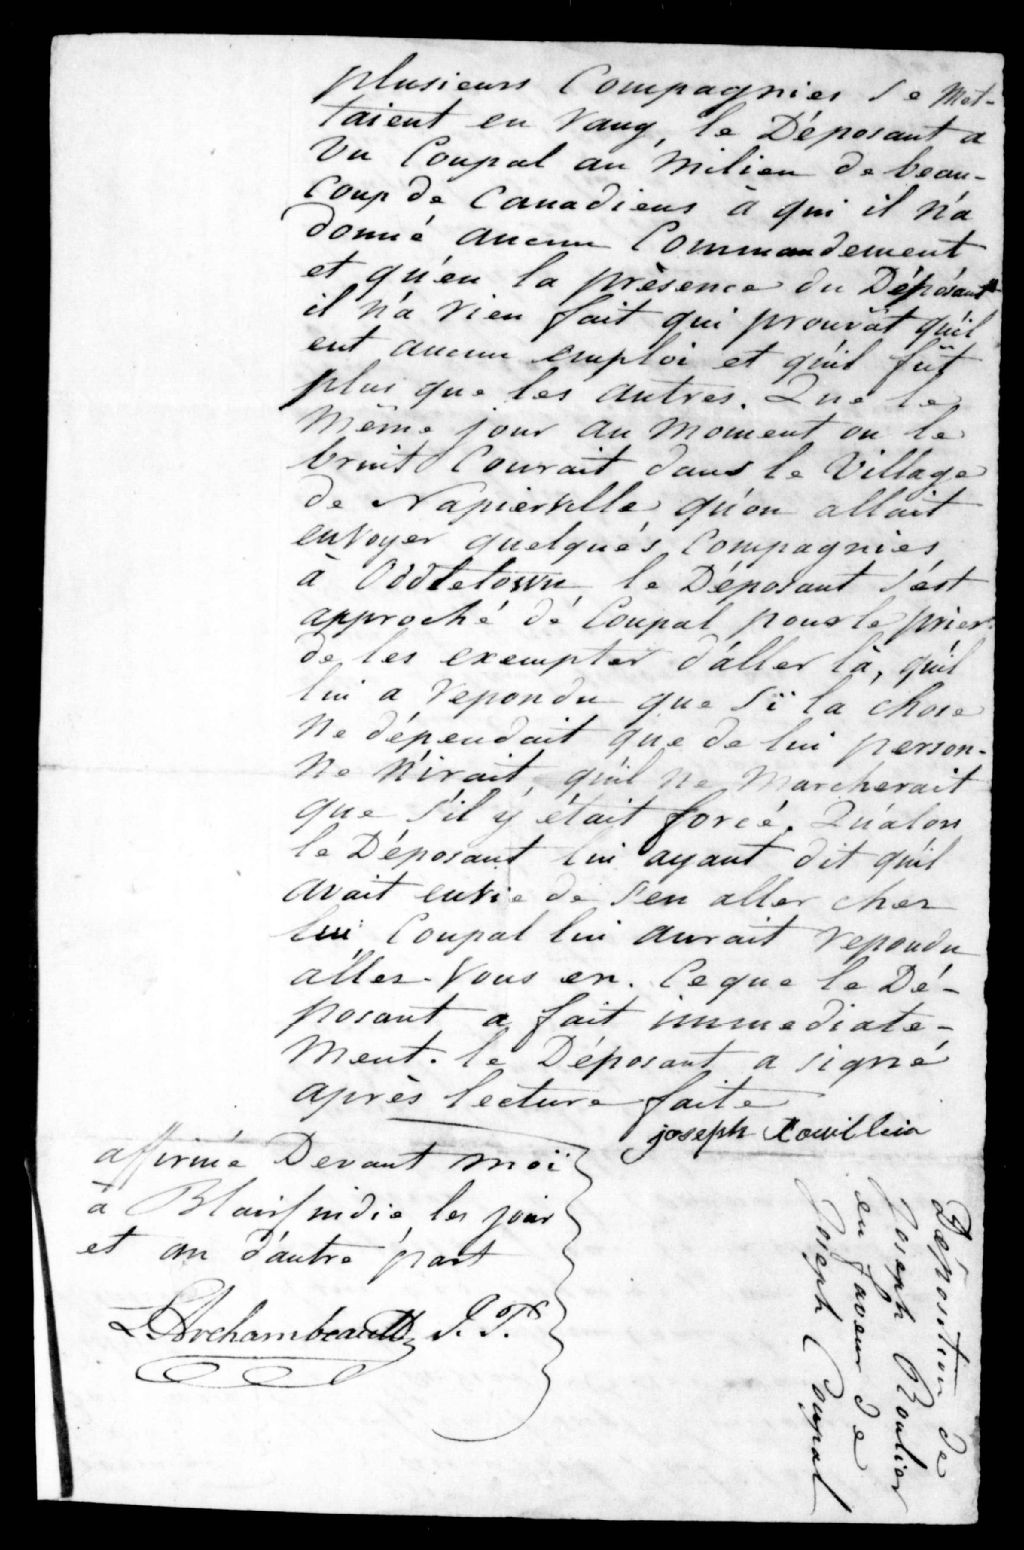 plusieurs Compagnies se met-
taient en rang, le Déposant a
vu Coupal au milieu de beau-
coup de Canadiens à qui il n'a
donné aucun Commandement
et qu'en la présence du Déposant
il n'a rien fait qui prouvât qu'il
eut aucun emploi et qu'il fût
plus que les autres. Que le
même jour au moment ou le
bruit Courait dans le Village
de Napierville qu'on allait
envoyer quelques Compagnies
à Oddletown, le Déposant s'est
approché de Coupal pour le prier
de les exempter d'aller là, qu'il
lui a repondu que si la chose
ne dépendait que de lui person-
ne n'irait, qu'il ne marcherait
que s'il y était forcé. Qu'alors
le Déposant lui ayant dit qu'il
avait envie de s'en aller chez
lui, Coupal lui aurait repondu
allez-vous en. Ce que le Dé-
posant a fait immediate-
ment. le Déposant a signé
après lecture faite
joseph
affirmé Devant moi
à Blairfindie, les jour
et an d'autre part
L. Archambeault J. P.
Déposition de
Joseph Roulier
en faveur de
Joseph Coupal